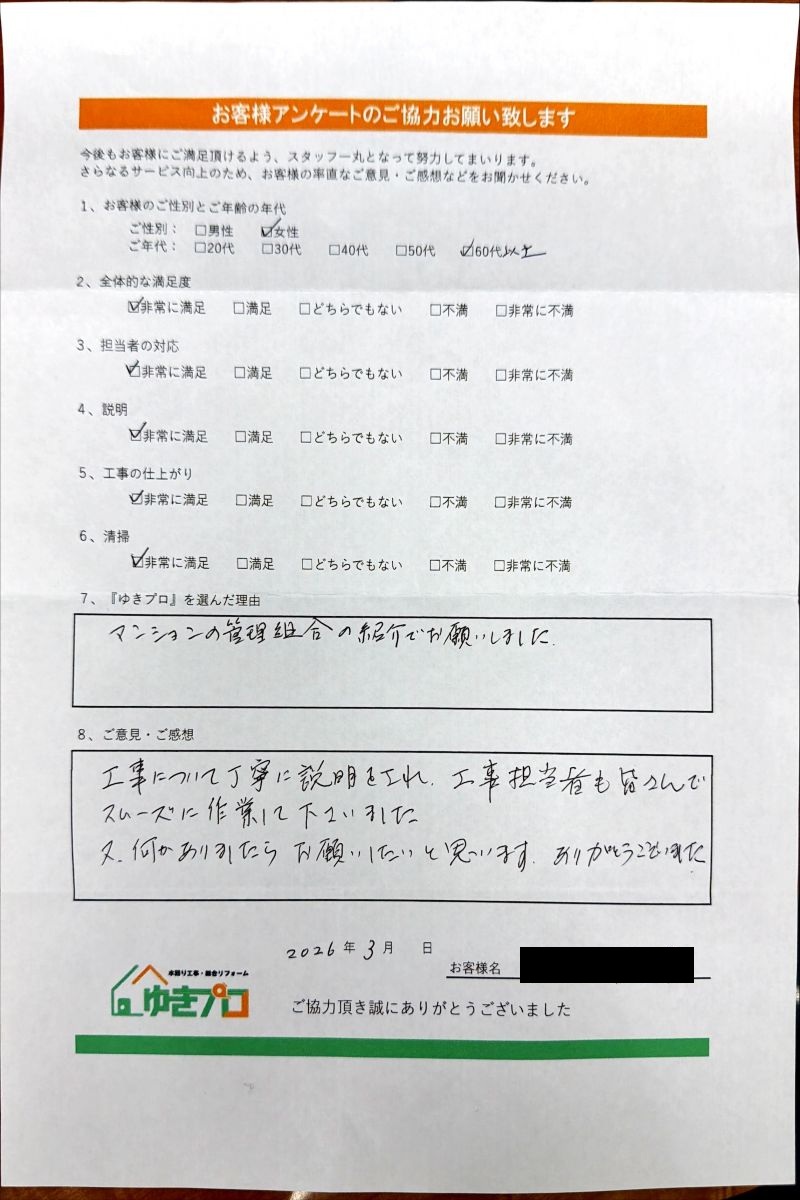 お客様アンケートのご協力お願い致します
今後もお客様にご満足頂けるよう、スタッフ一丸となって努力してまいります。
さらなるサービス向上のため、お客様の率直なご意見・ご感想などをお聞かせください。
1、お客様のご性別とご年齢の年代
ご性別： □男性 ☑女性
ご年代： □20代 □30代 □40代 □50代 ☑60代以上
2、全体的な満足度
☑非常に満足 □満足 □どちらでもない □不満 □非常に不満
3、担当者の対応
☑非常に満足 □満足 □どちらでもない □不満 □非常に不満
4、説明
☑非常に満足 □満足 □どちらでもない □不満 □非常に不満
5、工事の仕上がり
☑非常に満足 □満足 □どちらでもない □不満 □非常に不満
6、清掃
☑非常に満足 □満足 □どちらでもない □不満 □非常に不満
7、『ゆきプロ』を選んだ理由
マンションの管理組合の紹介でお願いしました.
8、ご意見・ご感想
工事について丁寧に説明をされ、工事担当者も皆さんで
スムーズに作業して下さいました
又、何かありましたらお願いしたいと思います. ありがとうございました
2026年 3月 日
お客様名
水廻り工事・総合リフォーム
ゆきプロ
ご協力頂き誠にありがとうございました